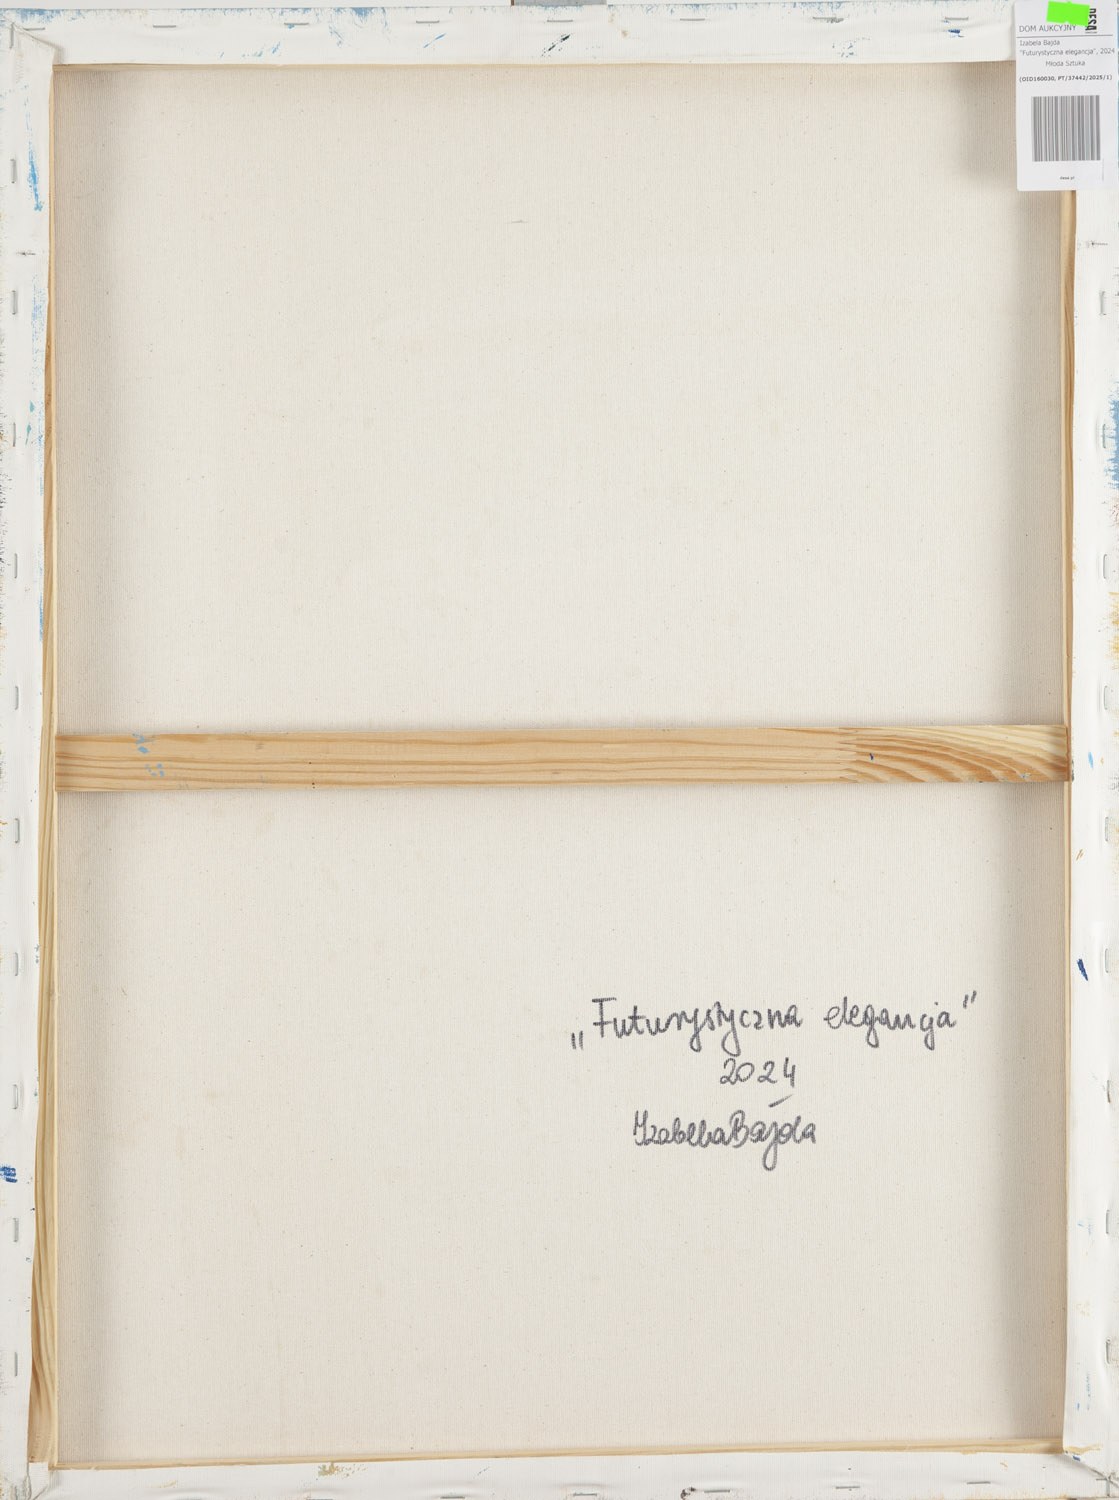 DESA
DOM AUKCYJNY
Izabela Bajda
"Futurystyczna elegancja", 2024
Młoda Sztuka
(OID160030, PT/37442/2025/1)
desa.pl
„Futurystyczna elegancja"
2024
Izabella Bajda